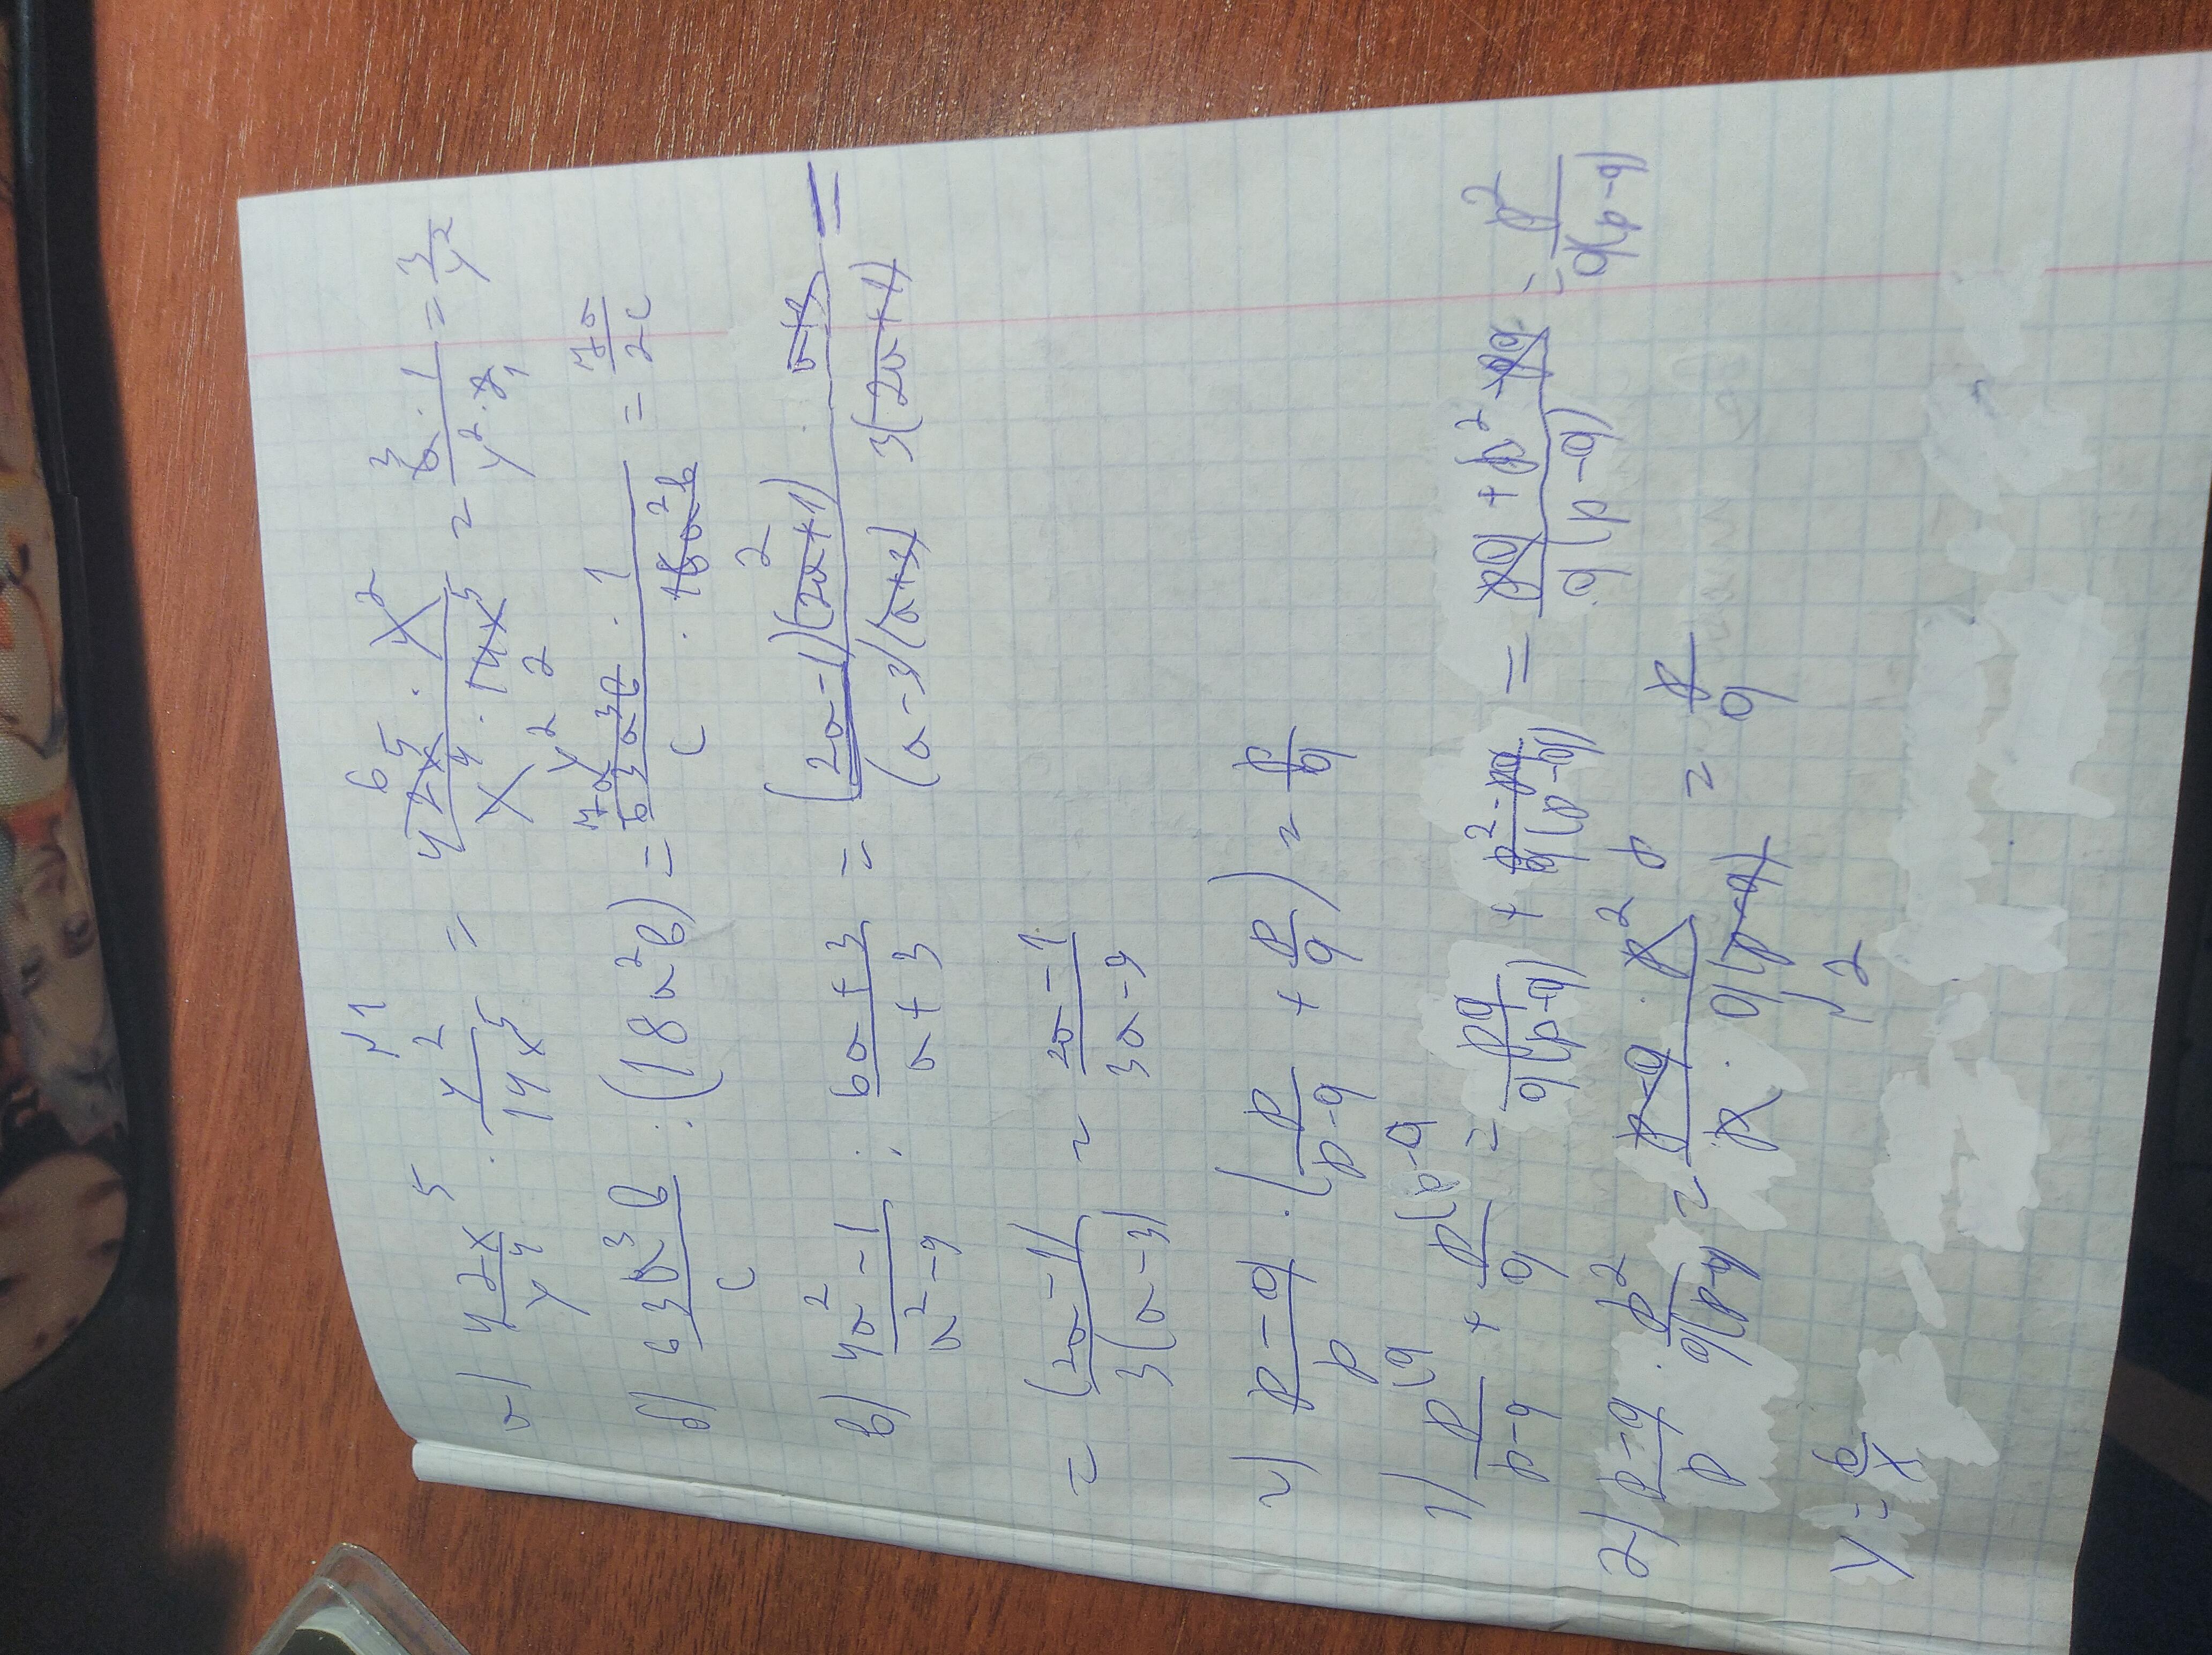 №1
а) 42x⁵/y⁴ · y²/14x⁵ = 42x⁵ · y²/y⁴ · 14x⁵ = 6 · 1/y² · 2 = 3/y²
б) 63a³b/c : (18a²b) = 63a³b · 1/c · 18a²b = 7a/2c
в) 4a² - 1/a² - 9 : 6a + 3/a + 3 = (2a - 1)(2a + 1) · a + 3/(a - 3)(a + 3) 3(2a + 1) =
= (2a - 1)/3(a - 3) = 2a - 1/3a - 9
г) p - q/p · (p/p - q + p/q) = p/q
1) p(q/p - q + p(p - q/q = pq/q(p - q) + p² - pq/q(p - q) = pq + p² - pq/q(p - q) = p²/q(p - q)
2) p - q/p · p²/q(p - q = p - q · p²/p · q(p - q) = p/q
№2
y = 6/x